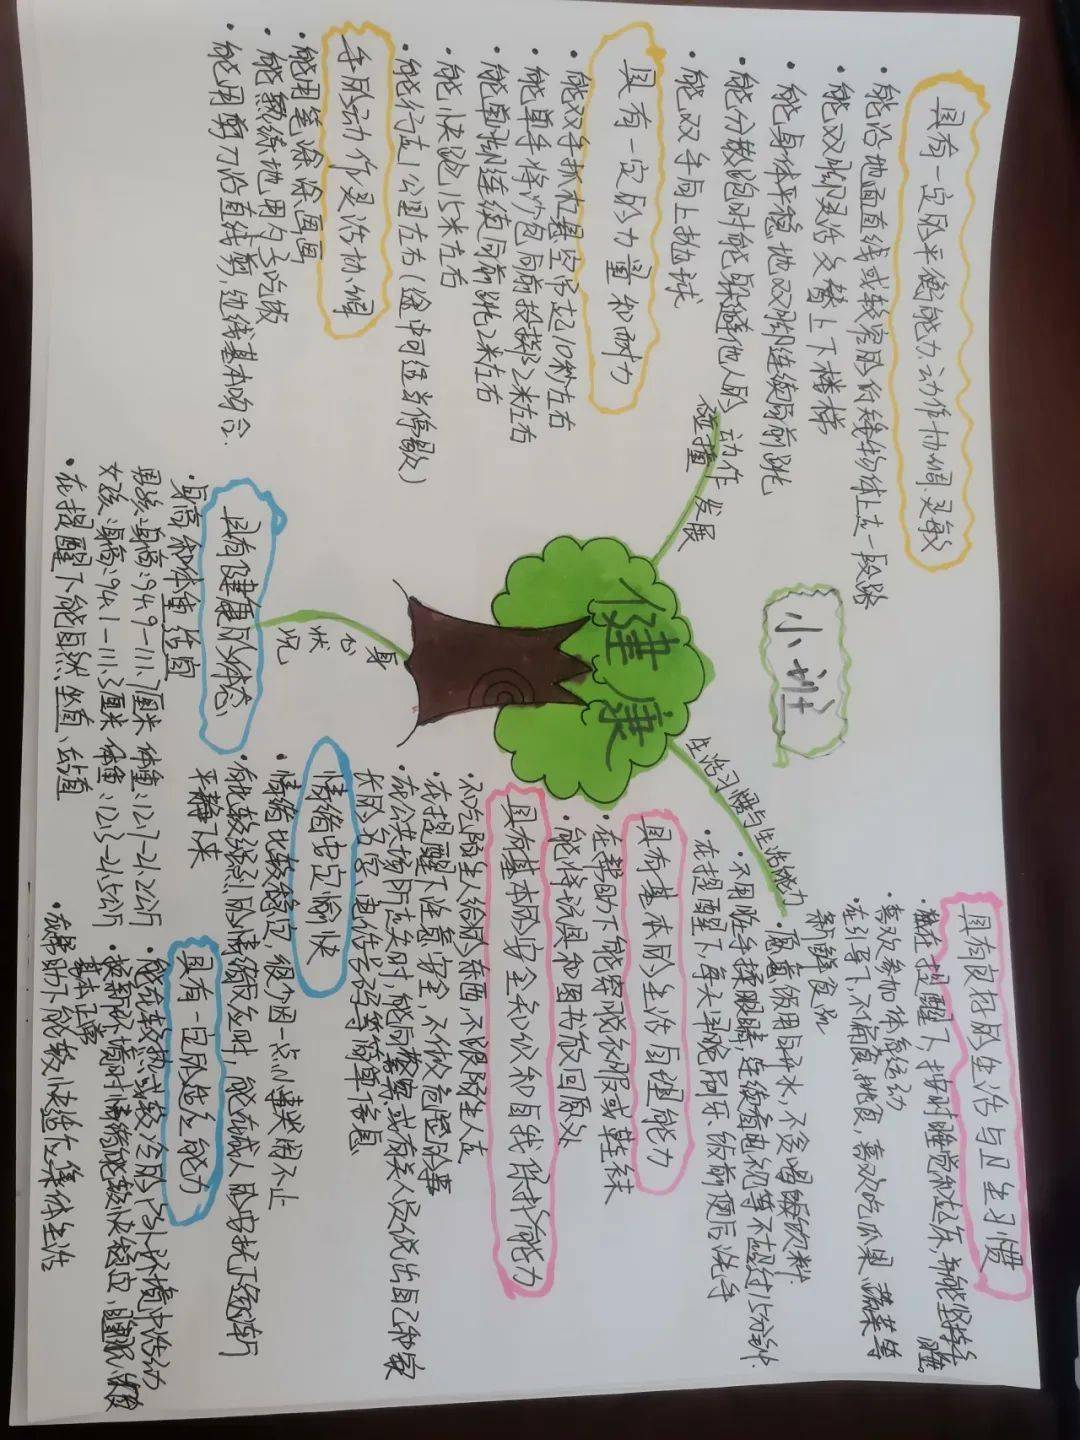 小班
健康
动作发展
具有一定的平衡能力,动作协调、灵敏
能沿地面直线或较窄的低矮物体上走一段路
能双脚灵活交替上下楼梯
能身体平稳地双脚连续向前跳
能分散跑时能躲避他人的碰撞
能双手向上抛球
具有一定的力量和耐力
能双手抓杠悬空吊起10秒左右
能单手将沙包向前投掷2米左右
能单脚连续向前跳2米左右
能快跑15米左右
能行走1公里左右(途中可适当停歇)
手的动作灵活协调
能用笔涂涂画画
能熟练地用勺子吃饭
能用剪刀沿直线剪,边线基本吻合.
生活习惯与生活能力
具有良好的生活与卫生习惯
在提醒下,按时睡觉和起床,并能坚持午睡。
喜欢参加体育活动
在引导下,不偏食、挑食、喜欢吃瓜果、蔬菜等
新鲜食品
愿意饮用白开水,不贪喝饮料.
不用脏手揉眼睛,连续看电视等不超过15分钟.
在提醒下,每天早晚刷牙、饭前便后洗手
具有基本的生活自理能力
在帮助下能穿脱衣服或鞋袜
能将玩具和图书放回原处
具有基本的安全知识和自我保护能力
不吃陌生人给的东西,不跟陌生人走
在提醒下注意安全,不做危险的事
在公共场所走失时,能向警察或有关人员说出自己和家
长的名字、电话号码等简单信息
身心状况
具有健康的体态
身高和体重适宜
男孩:身高:94.9-111.7厘米 体重:12.7-21.2公斤
女孩:身高:94.1-111.3厘米 体重:12.3-21.5公斤
在提醒下能自然坐直、站直
情绪安定愉快
情绪比较稳定,很少因一点小事哭闹不止
有比较强烈的情绪反应时,能在成人的安抚下逐渐
平静下来
具有一定的适应能力
能在较热或较冷的户外环境中活动
换新环境时情绪能较快稳定,睡眠、饮食
基本正常
在帮助下能较快适应集体生活